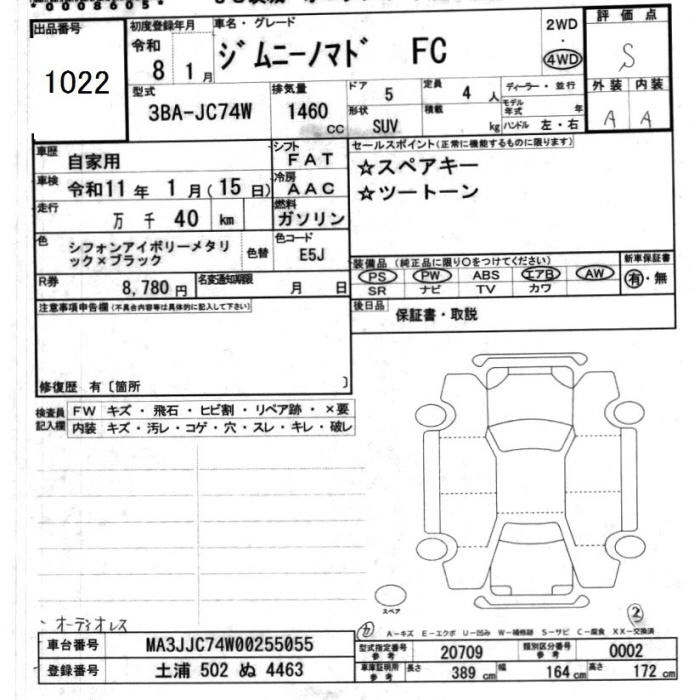 出品番号
1022
初度登録年月
令和
8 1月
車名・グレード
ジムニーノマド FC
2WD
・
4WD
評価点
S
外装 内装
A A
型式
3BA-JC74W
排気量
1460
cc
ドア
5
定員
4 人
形状
SUV
積載
kg
ディーラー・並行
モデル年式 年
ハンドル 左・右
車歴
自家用
シフト
FAT
車検
令和11年 1月(15日)
冷房
AAC
走行
万 千 40 km
燃料
ガソリン
色
シフォンアイボリーメタリ
ック×ブラック
色替
色コード
E5J
R券
8,780円
名変通知期限
月 日
セールスポイント(正常に機能するものに限ります)
☆スペアキー
☆ツートーン
装備品(純正品に限り○をつけてください)
PS PW ABS エアB AW
SR ナビ TV カワ
新車保証書
有・無
後日品
保証書・取説
注意事項申告欄(不具合内容等は具体的に記入して下さい)
修復歴 有〔箇所 〕
検査員
記入欄
FW キズ・飛石・ヒビ割・リペア跡・×要
内装 キズ・汚レ・コゲ・穴・スレ・キレ・破レ
スペア
オーディオレス
2
A-キズ E-エクボ U-凹み W-補修跡 S-サビ C-腐食 XX-交換済
車台番号
MA3JJC74W00255055
登録番号
土浦 502 ぬ 4463
型式指定番号
参考
20709
類別区分番号
参考
0002
車庫証明所
参考
長さ 389 cm
幅 164 cm
高さ 172 cm